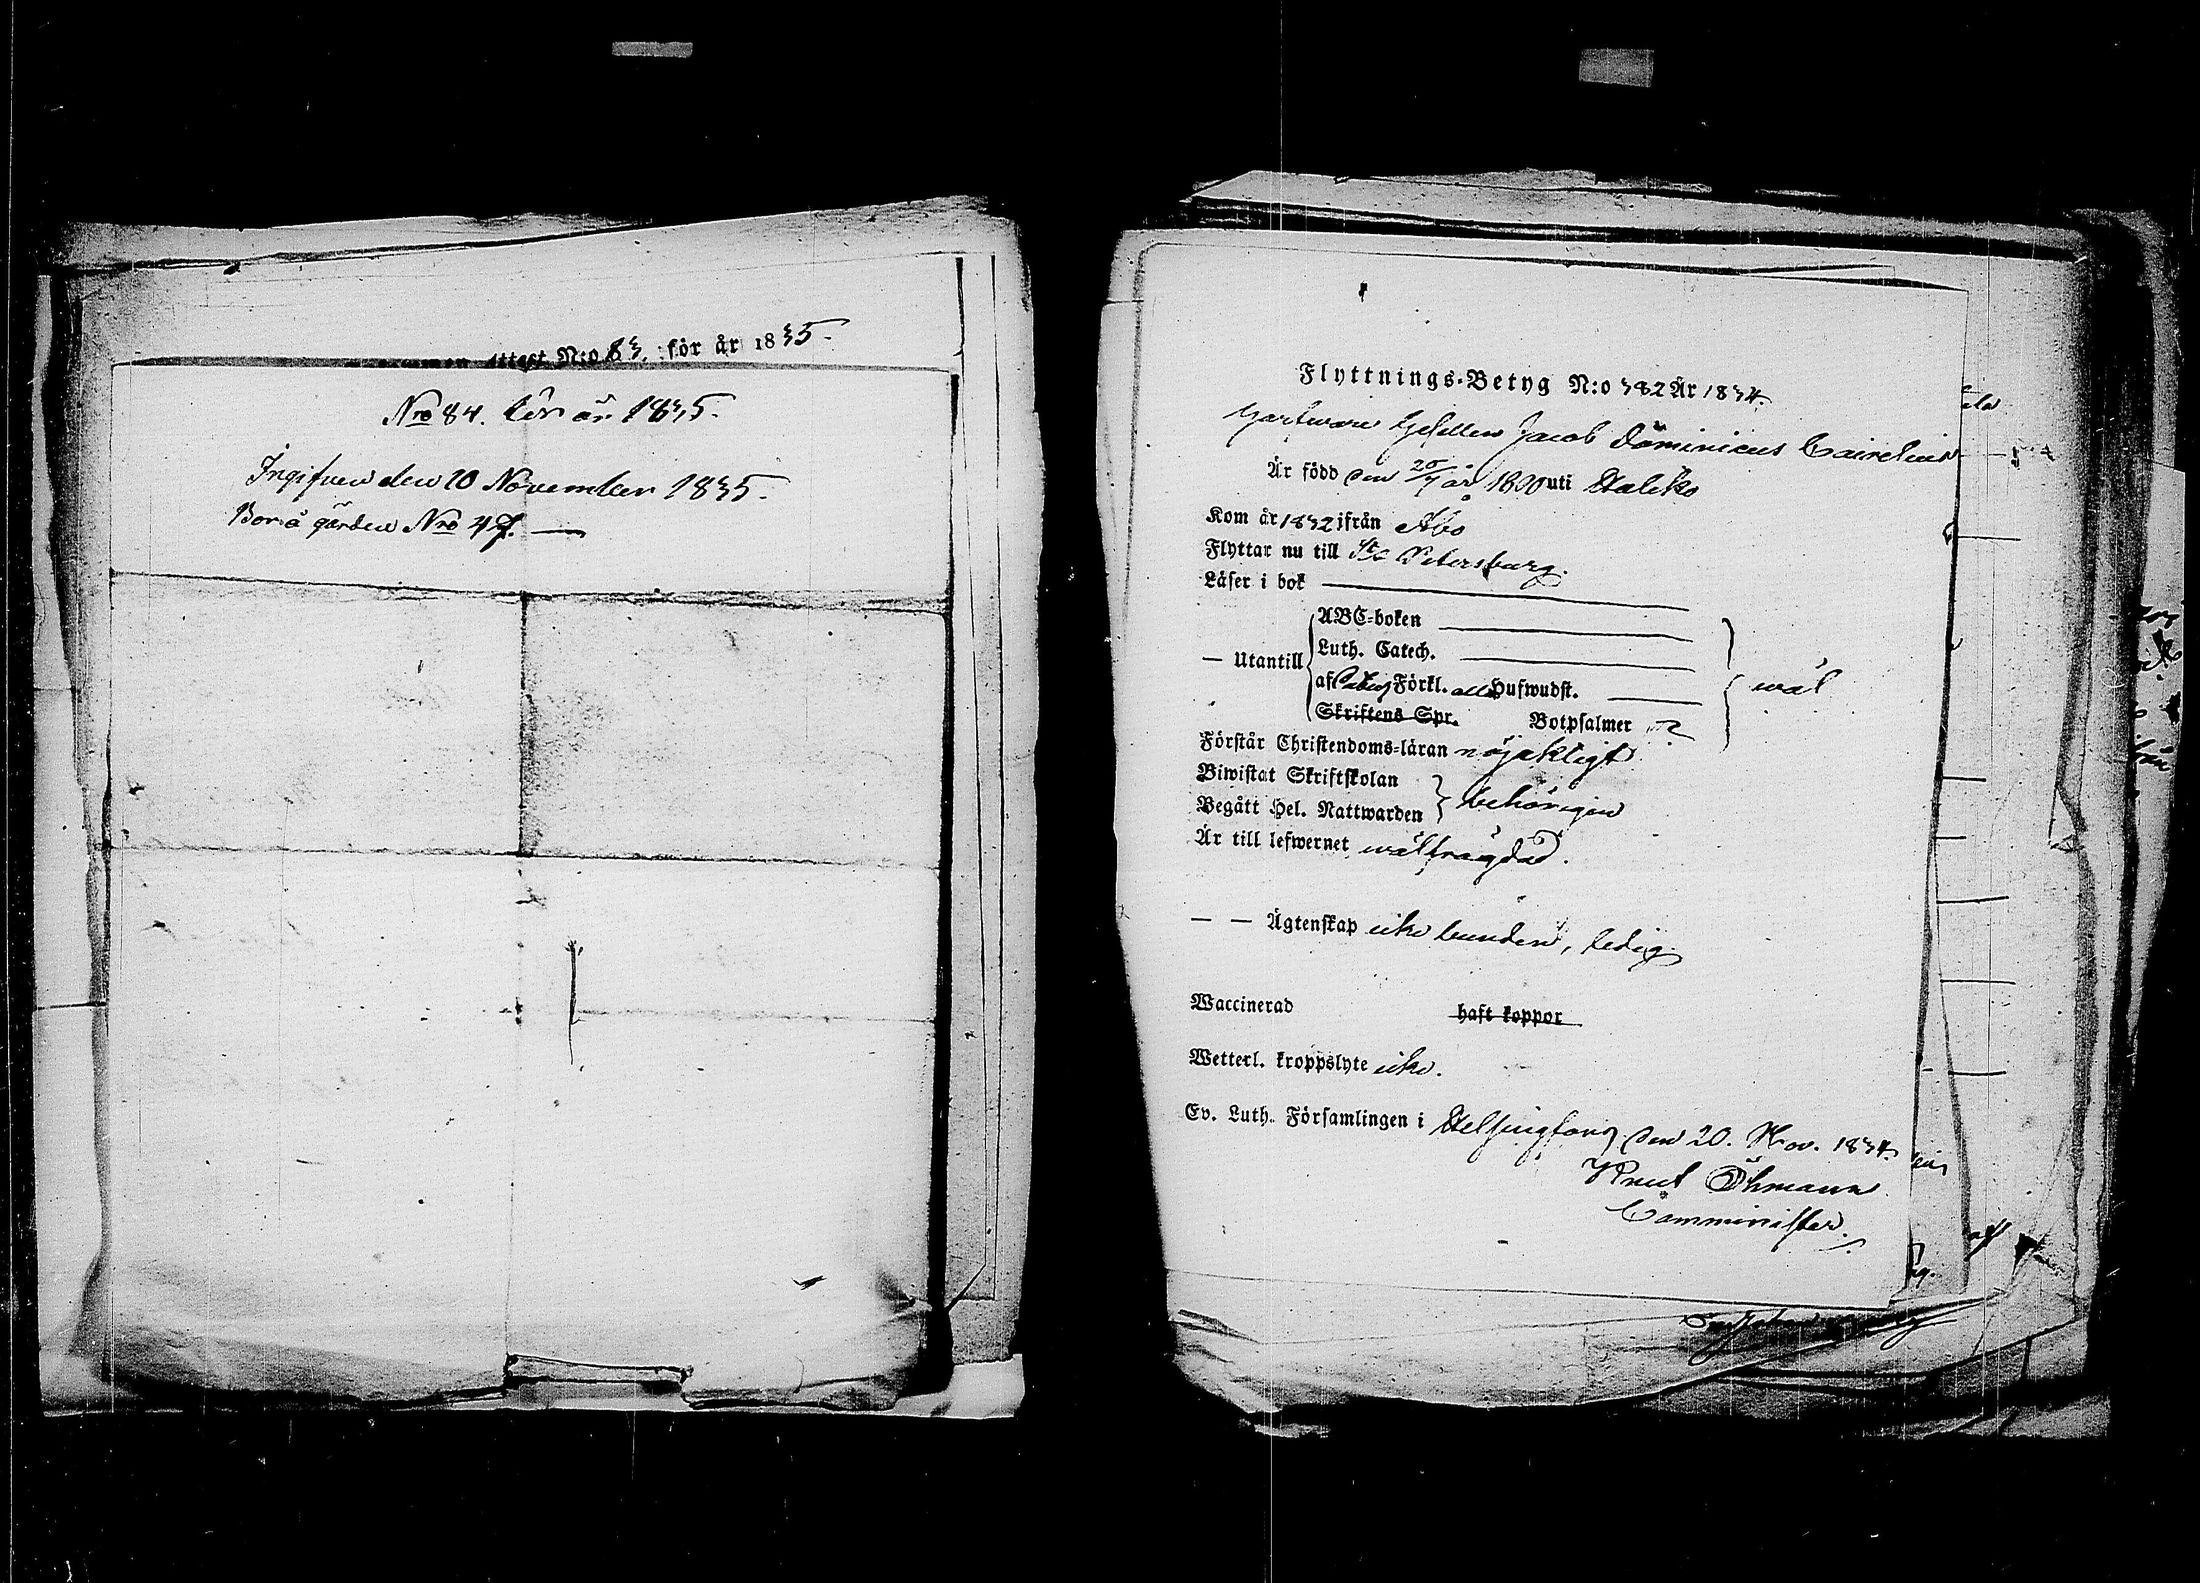 attest N:o 83. för år 1835.
Nro 84. för år 1835.
Ingifven den 20 November 1835.
Bor i gården Nro 47.
Flyttnings-Betyg N:o 382 År 1834.
Garfware Gesellen Jacob Dominicus
Är född den 25/7 år 1800 uti Haliko
Kom år 1832 ifrån Åbo
Flyttar nu till St Petersburg.
Läser i bok
— Utantill
ABC-boken
Luth. Catech.
af Förkl. alla Hufwudst.
Skriftens Spr. Botpsalmer
wäl
Förstår Christendoms-läran nöjaktigt
Biwistat Skriftskolan
Begått Hel. Nattwarden behörigen
Är till lefwernet wälfrägdad.
— — Ägtenskap icke bunden, ledig
Waccinerad haft koppor
Wetterl. kroppslyte icke.
Ev. Luth. Församlingen i Helsingfors den 20. Nov. 1834.
Knut Öhmann
Comminister.